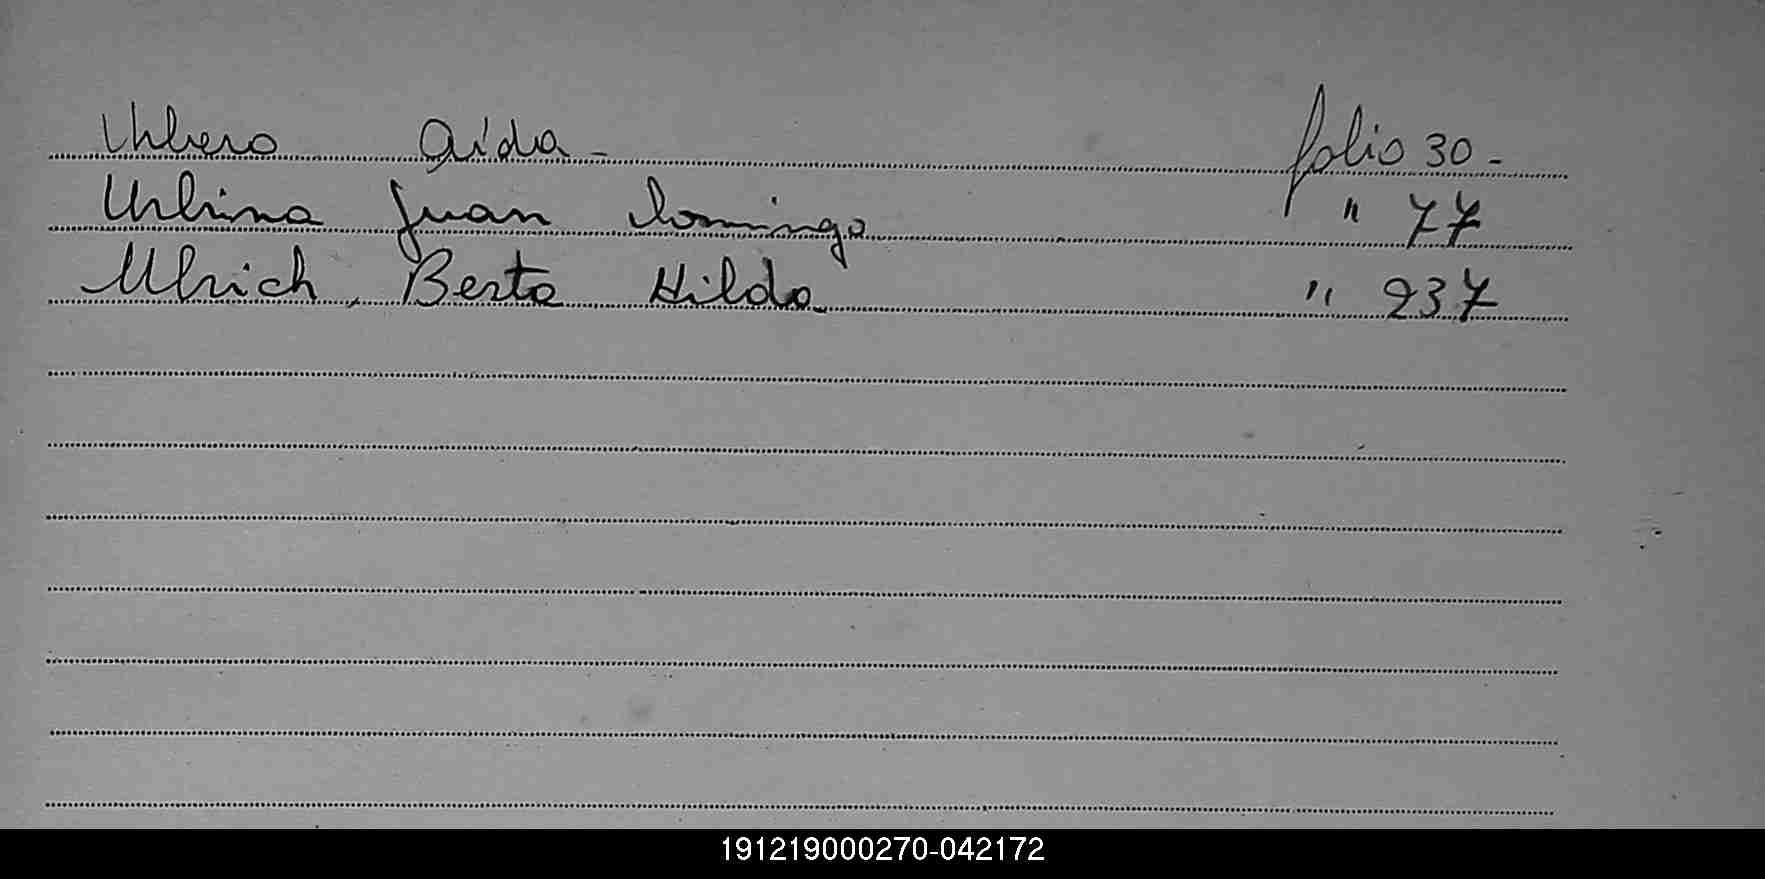 Urbero Aída - folio 30 -
Urbina Juan Domingo " 77
Ulrich, Berta Hilda " 237
191219000270-042172